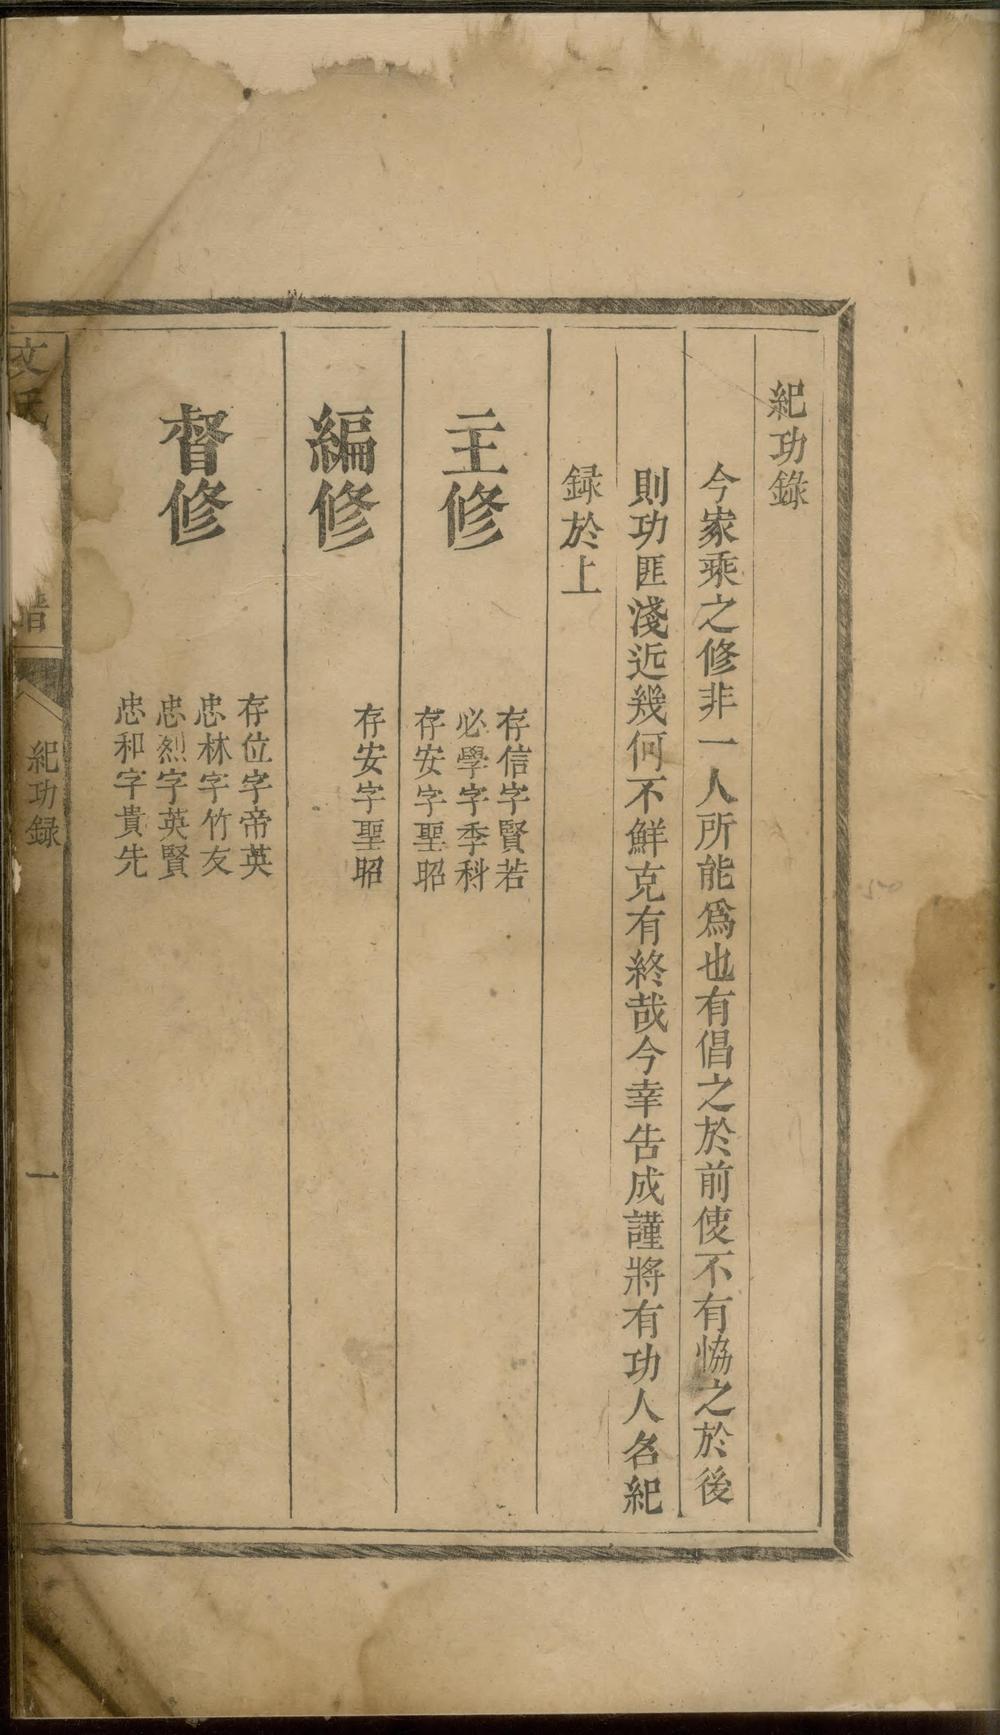 紀功錄
今家乘之修非一人所能爲也有倡之於前使不有恊之於後
則功匪淺近幾何不鮮克有終哉今幸告成謹將有功人名紀
録於上
主修
存信字賢若
必學字季科
存安字聖昭
編修
存安字聖昭
督修
存位字帝英
忠林字竹友
忠烈字英賢
忠和字貴先
文氏
譜
紀功録
一